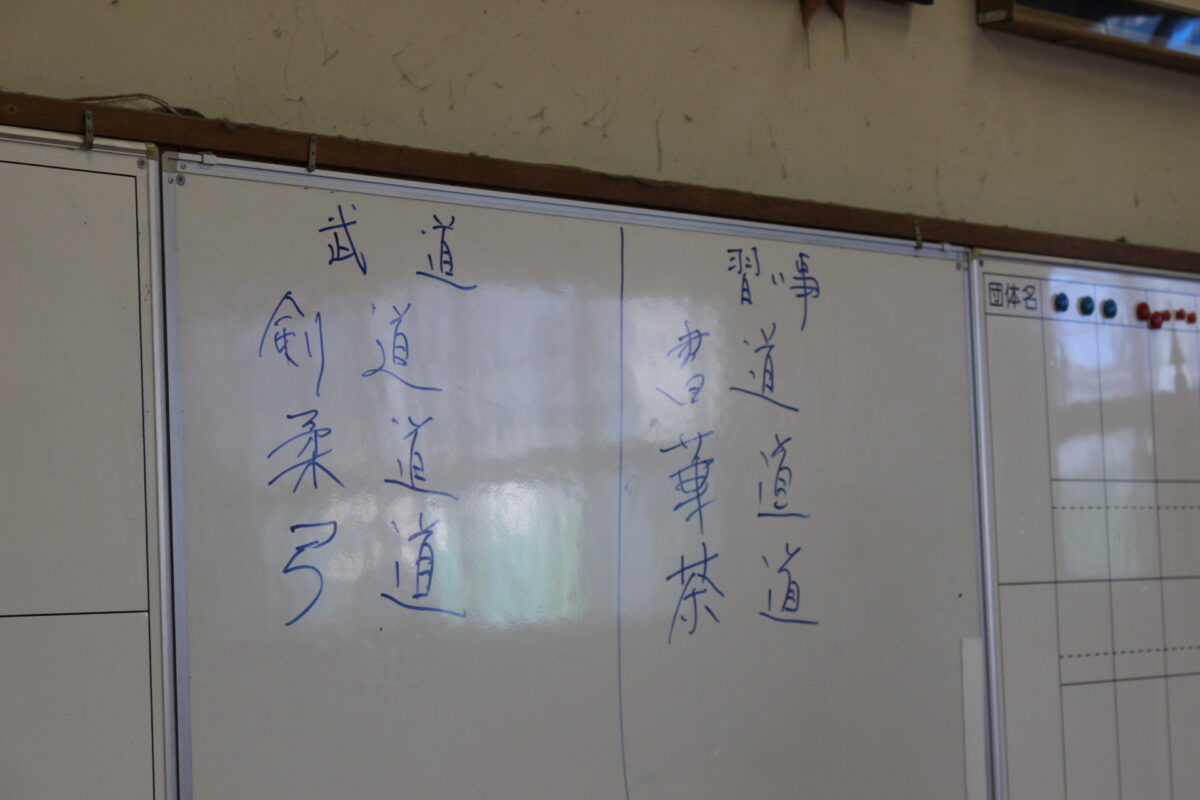 武道
剣道
柔道
弓道
習い事
書道
華道
茶道
団体名